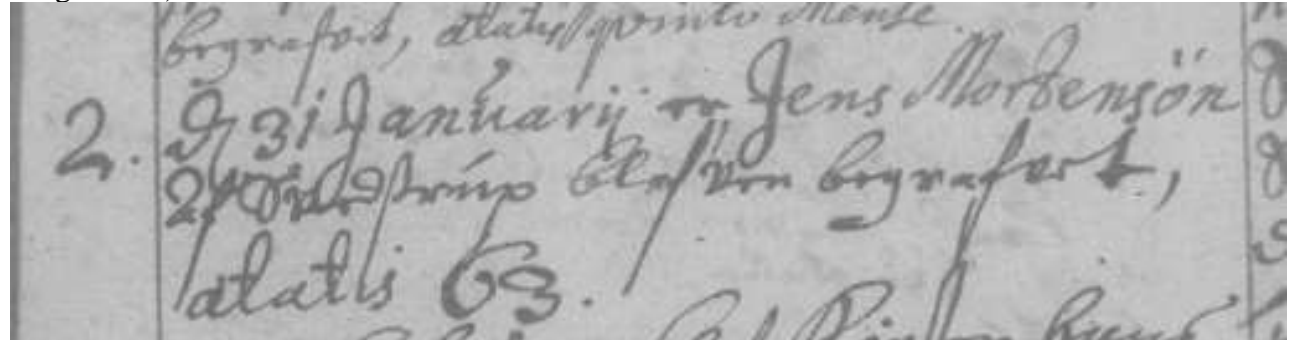 begrafvet, ætatis qvinto Mense.
2. D 31 Januarij er Jens Mortensön
af strup blefven begrafvet,
ætatis 63.